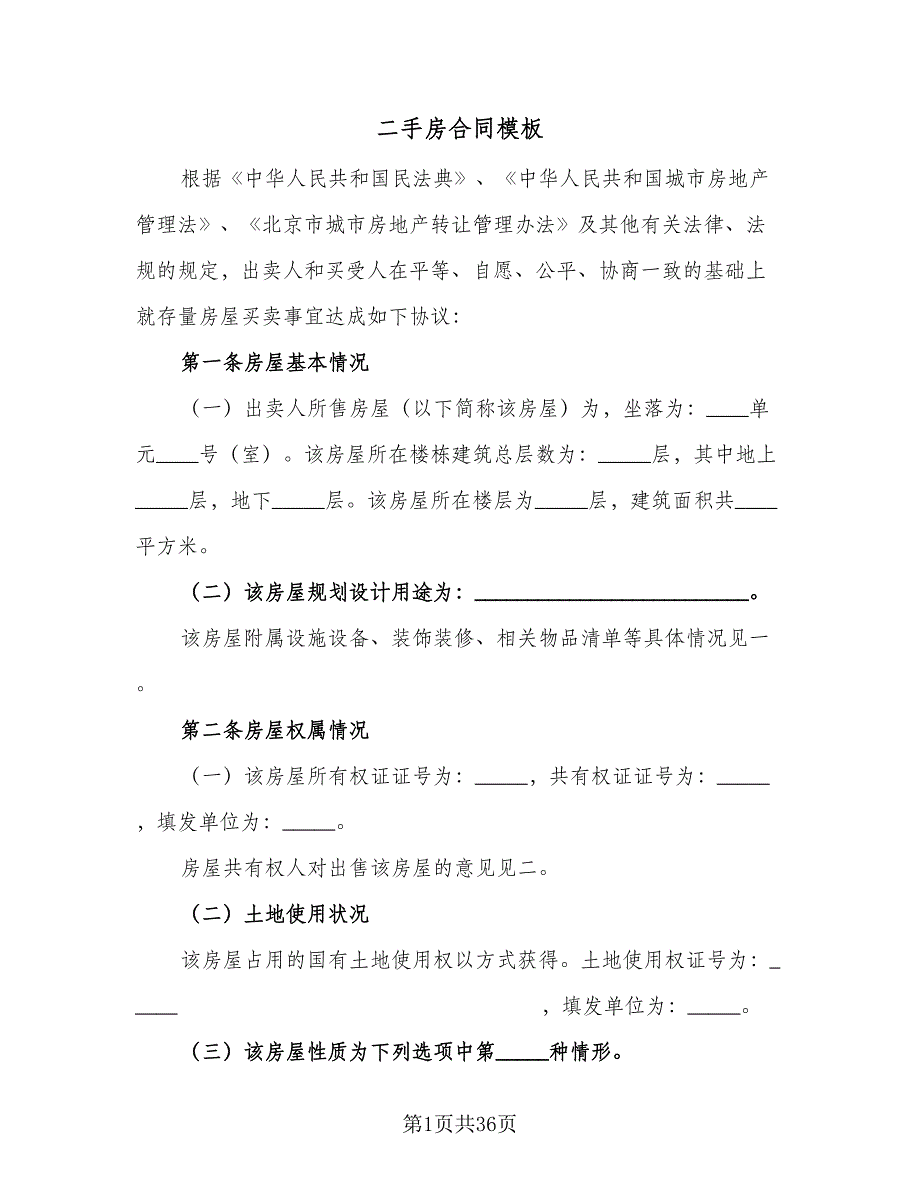 二手房合同模板
根据《中华人民共和国民法典》、《中华人民共和国城市房地产
管理法》、《北京市城市房地产转让管理办法》及其他有关法律、法
规的规定，出卖人和买受人在平等、自愿、公平、协商一致的基础上
就存量房屋买卖事宜达成如下协议：
第一条房屋基本情况
（一）出卖人所售房屋（以下简称该房屋）为，坐落为：____单
元____号（室）。该房屋所在楼栋建筑总层数为：_____层，其中地上
_____层，地下_____层。该房屋所在楼层为_____层，建筑面积共____
平方米。
（二）该房屋规划设计用途为：__________________________。
该房屋附属设施设备、装饰装修、相关物品清单等具体情况见一
。
第二条房屋权属情况
（一）该房屋所有权证证号为：_____，共有权证证号为：_____
，填发单位为：_____。
房屋共有权人对出售该房屋的意见见二。
（二）土地使用状况
该房屋占用的国有土地使用权以方式获得。土地使用权证号为：_
____，填发单位为：_____。
（三）该房屋性质为下列选项中第_____种情形。
第1页共36页